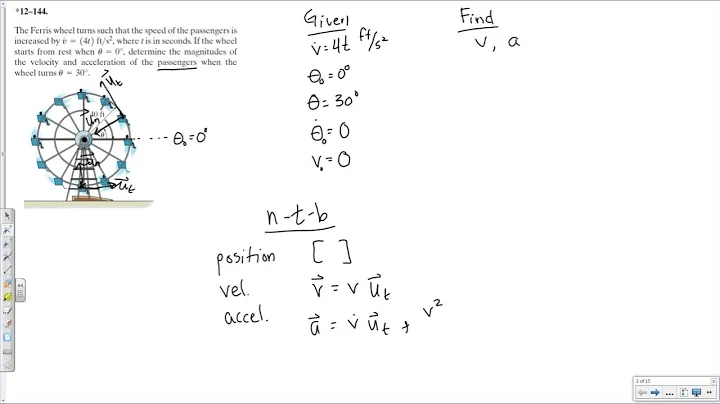 *12–144.
The Ferris wheel turns such that the speed of the passengers is
increased by v̇ = (4t) ft/s², where t is in seconds. If the wheel
starts from rest when θ = 0°, determine the magnitudes of
the velocity and acceleration of the passengers when the
wheel turns θ = 30°.
u⃗t
40 ft
θ
θ₀=0°
u⃗t
Given
v̇=4t ft/s²
θ₀=0°
θ=30°
θ̇₀=0
v₀=0
Find
v, a
n-t-b
position [ ]
vel. v⃗ = v u⃗t
accel. a⃗ = v̇ u⃗t + v²
1 of 15